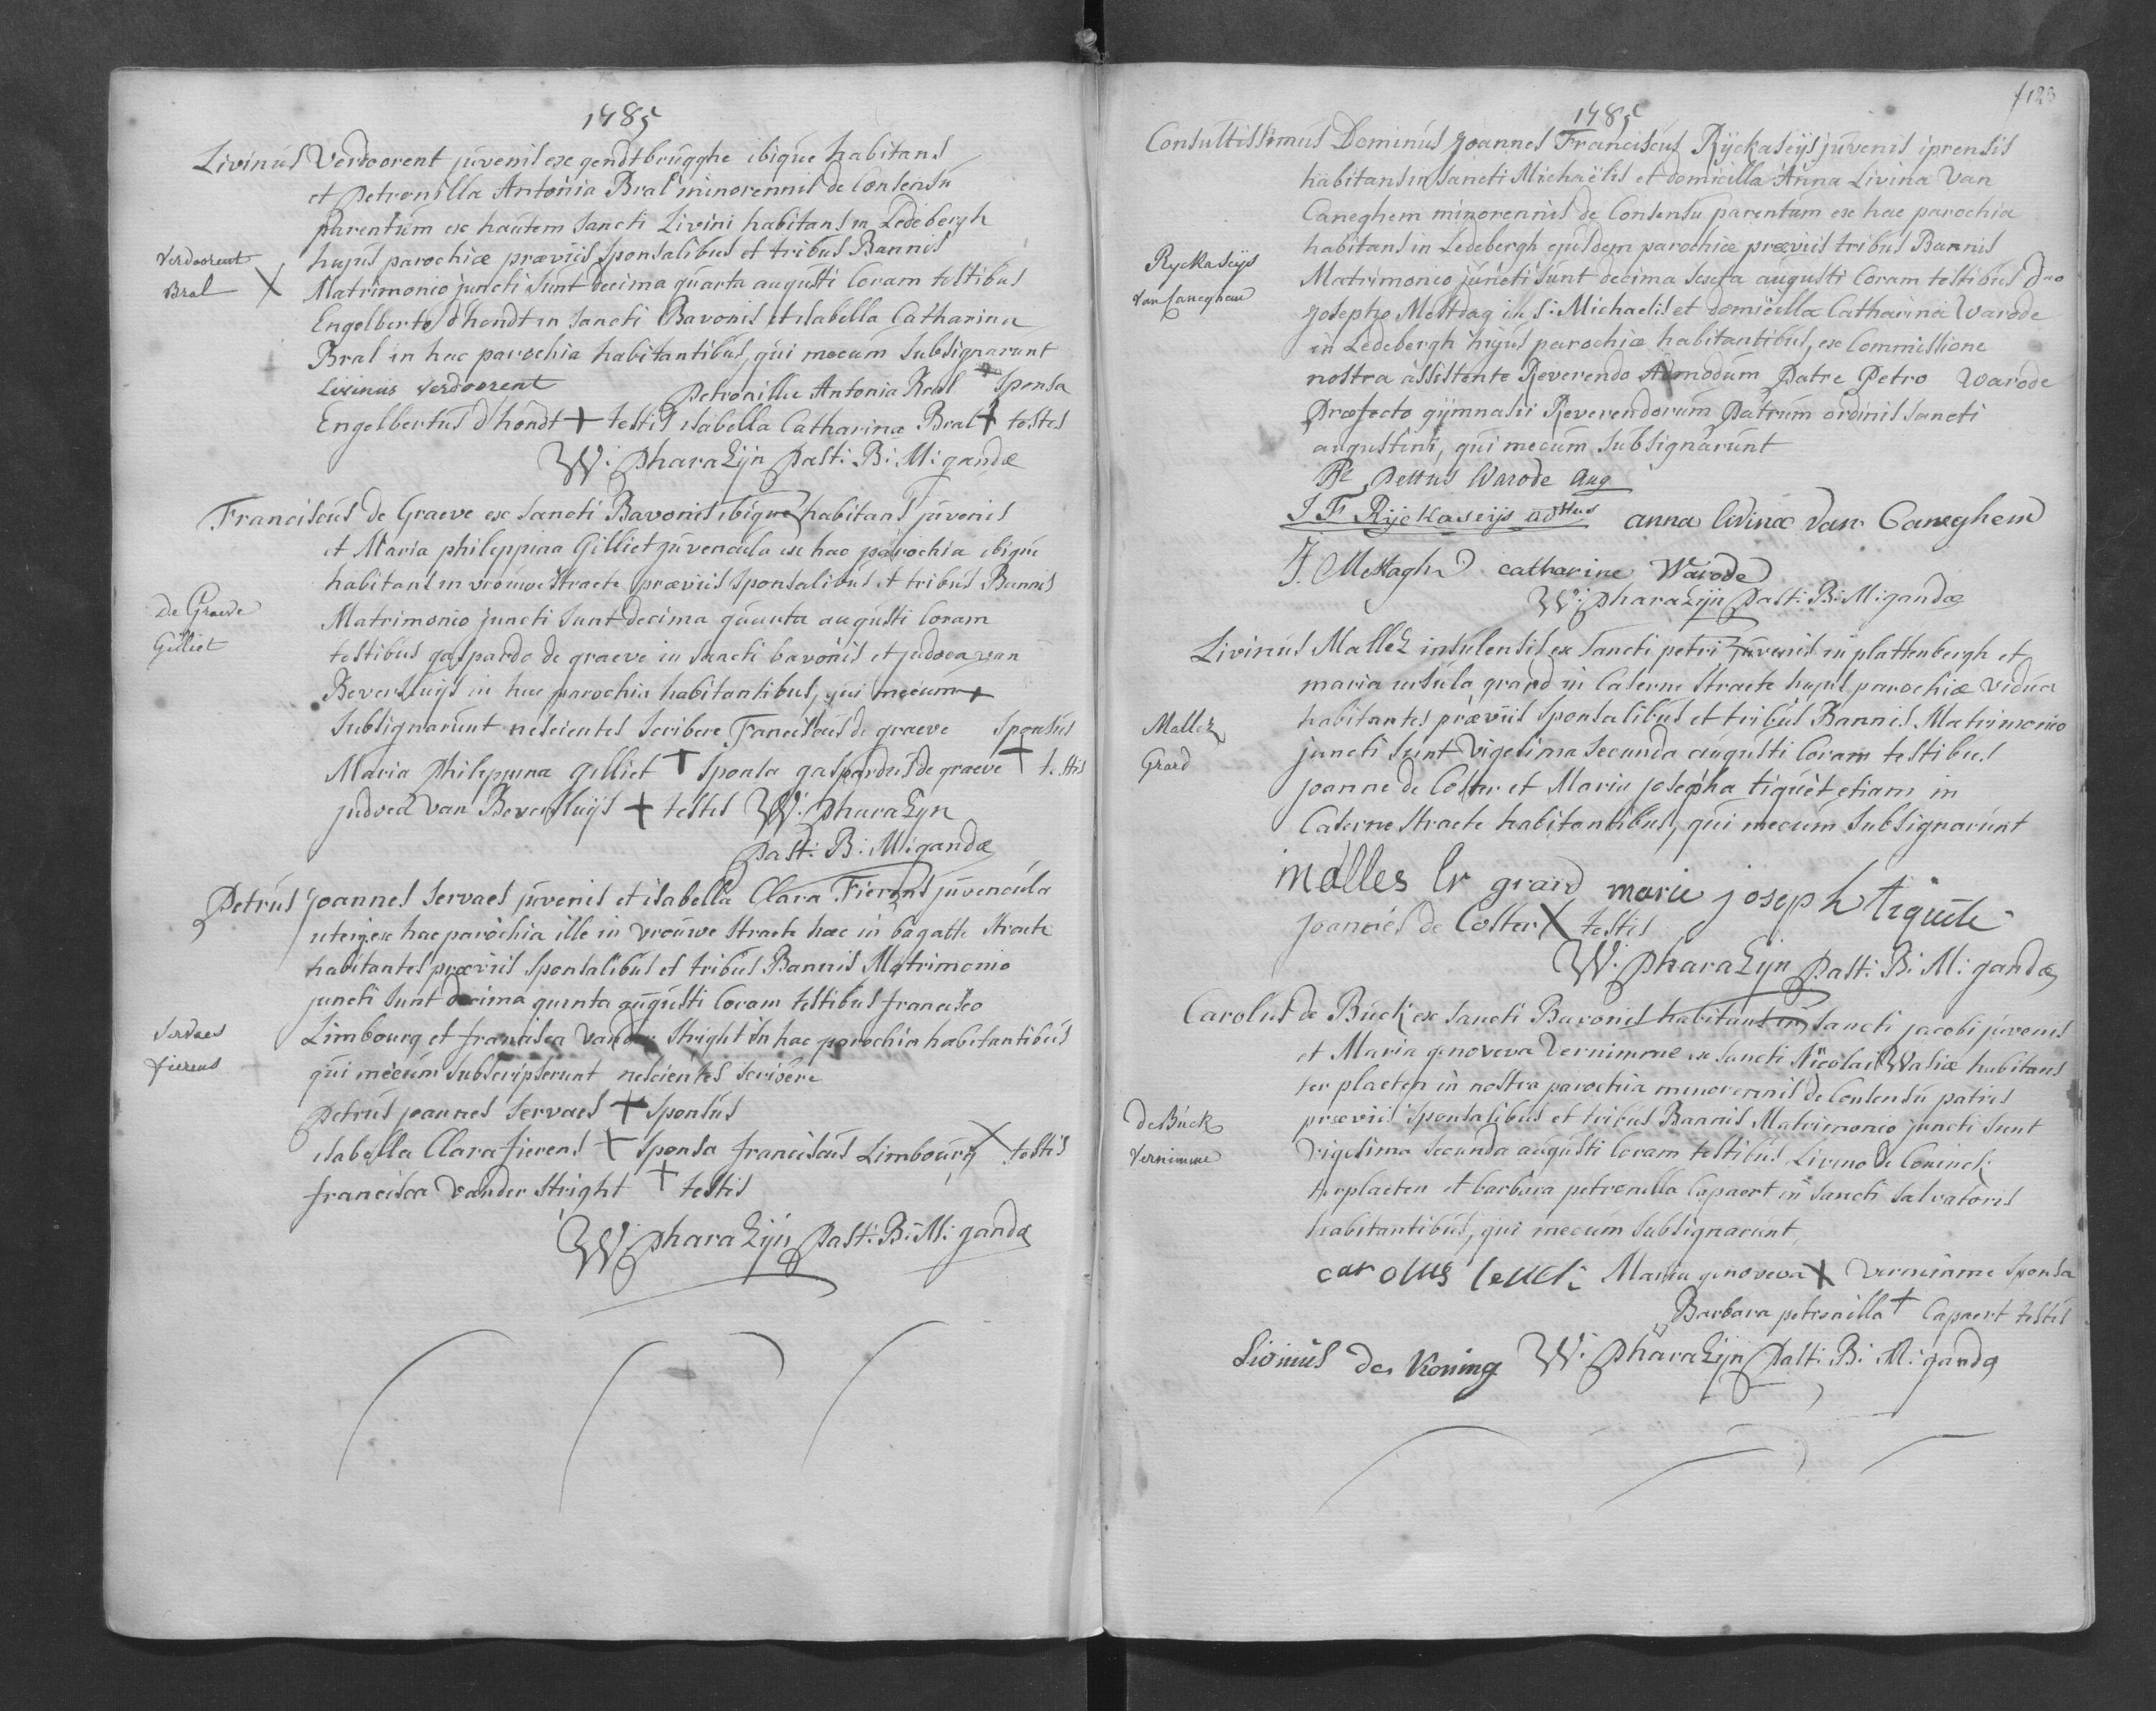 1785
Livinus Verdoorent juvenis ex gendtbrugghe ibique habitans
et Petronilla Antonia Bral minorennis de Consensu
parentum ex hautem Sancti Livini habitans in Ledebergh
hujus parochiæ præviis Sponsalibus et tribus Bannis
Verdoorent
Bral X
Matrimonio juncti Sunt decima quarta augusti Coram testibus
Engelberto d'hondt in Sancti Bavonis et isabella Catharina
Bral in hac parochia habitantibus, qui mecum Subsignarunt
Livinus Verdoorent Petronilla Antonia Bral + Sponsa
Engelbertus d'hondt + testis isabella Catharina Bral + testes
W: PharaZijn Past: B: M: gandæ
Franciscus de Graeve ex Sancti Bavonis ibique habitans juvenis
et Maria philippina Gilliet juvencula ex hac parochia ibique
habitans in vrouwe Straete præviis Sponsalibus et tribus Bannis
De Graeve
Gilliet
Matrimonio juncti Sunt decima quarta augusti Coram
testibus gaspardo de graeve in Sancti bavonis et judoca van
Beversluijs in hac parochia habitantibus, qui mecum +
Subsignarunt nescientes Scribere Fanciscus de graeve Sponsus
Maria Philippina gilliet + Sponsa gaspardus de graeve + testis
judoca van Beversluijs + testes W: PharaZyn
Past: B: M: gandæ
Petrus Joannes Servaes juvenis et isabella Clara Fierens juvencula
uterq ex hac parochia ille in vrouwe Straete hæc in bagatte Straete
habitantes præviis Sponsalibus et tribus Bannis Matrimonio
juncti Sunt decima quinta augusti Coram testibus francisco
Servaes
fierens
Limbourg et francisca Vander Stright in hac parochia habitantibus
qui mecum Subscripserunt nescientes scribere
Petrus joannes Servaes + Sponsus
isabella Clara fierens + Sponsa franciscus Limbourg X testis
francisca Vander Stright + testis
W: PharaZijn Past: B: M: gandæ
f 123
1785
Consultissimus Dominus Joannes Franciscus Ryckaseijs juvenis iprensis
habitans in Sancti Michaëlis et domicilla Anna Livina Van
Caneghem minorennis de Consensu parentum ex hac parochia
habitans in Ledebergh ejusdem parochiæ præviis tribus Bannis
Ryckaseijs
Van Caneghem
Matrimonio juncti Sunt decima sexta augusti Coram testibus Dno
Josepho Mestdag in S: Michaelis et domicilla Catharina Warode
in Ledebergh hujus parochiæ habitantibus, ex Commissione
nostra assistente Reverendo Admodum Patre Petro Warode
Præfecto gijmnasii Reverendorum Patrum ordinis Sancti
augustini, qui mecum Subsignarunt
Petrus Warode Aug
J F Rijckaseijs advtus anna livina van Caneghem
J. Mestagh catharine Warode
W: PharaZijn Past: B: M: gandæ
Livinus Mallez insulensis ex Sancti petri juvenis in plattenbergh et
maria ursula grard in Caserne Straete hujus parochiæ vidua
Mallez
Grard
habitantes præviis Sponsalibus et tribus Bannis Matrimonio
juncti Sunt Vigesima Secunda augusti Coram testibus
joanne de Coster et Maria josepha tiquet etiam in
Caserne Straete habitantibus, qui mecum Subsignarunt
malles grard marie joseph tiquete
joannes de Coster X testis
W: PharaZijn Past: B: M: gandæ
Carolus de Buck ex Sancti Bavonis habitans in Sancti jacobi juvenis
et Maria genoveva Vernimme ex Sancti Nicolai Wasiæ habitans
ter plaeten in nostra parochia minorennis de Consensu patris
De Buck
Vernimme
præviis Sponsalibus et tribus Bannis Matrimonio juncti Sunt
Vigesima Secunda augusti Coram testibus Livino de Coninck
terplaeten et barbara petronilla Capaert in Sancti Salvatoris
habitantibus, qui mecum Subsignarunt,
carolus Maria genoveva X Vernimme Sponsa
Barbara petronilla + Capaert testis
Livinus de Koning W: PharaZijn Past: B: M: gandæ